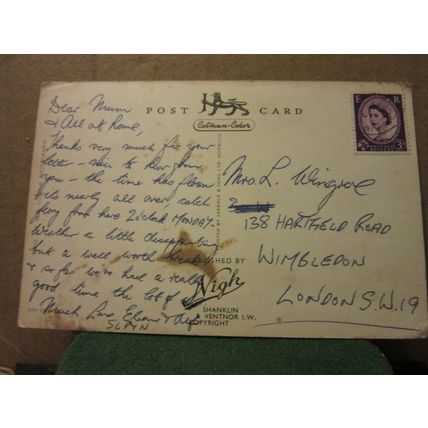 POST CARD
Cotman-Color
E R
3D
Dear Mum
& All at home,
Thanks very much for your
letter - nice to hear from
you - the time has flown
& its nearly all over - catch
ferry from here 2 o'clock MONDAY.
Weather a little disappointing
but a well worth
& so far we've had a really
good time the lot of us
Much Love, Eleanor &
Mrs. L. Wingrove
138 HARTFIELD ROAD
WIMBLEDON
LONDON S.W.19
PUBLISHED BY
Nigh
SHANKLIN
VENTNOR I.W.
COPYRIGHT